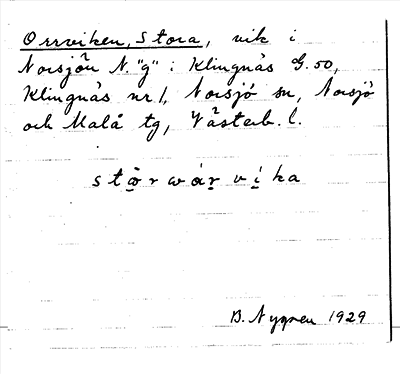 Orrviken, Stora, vik i
Norsjön N. "g" i Klingnäs G. 50,
Klingnäs nr 1, Norsjö sn, Norsjö
och Malå tg, Västerb. l.
stŏ̱r wár̠ ví̠ka
B. Nygren 1929